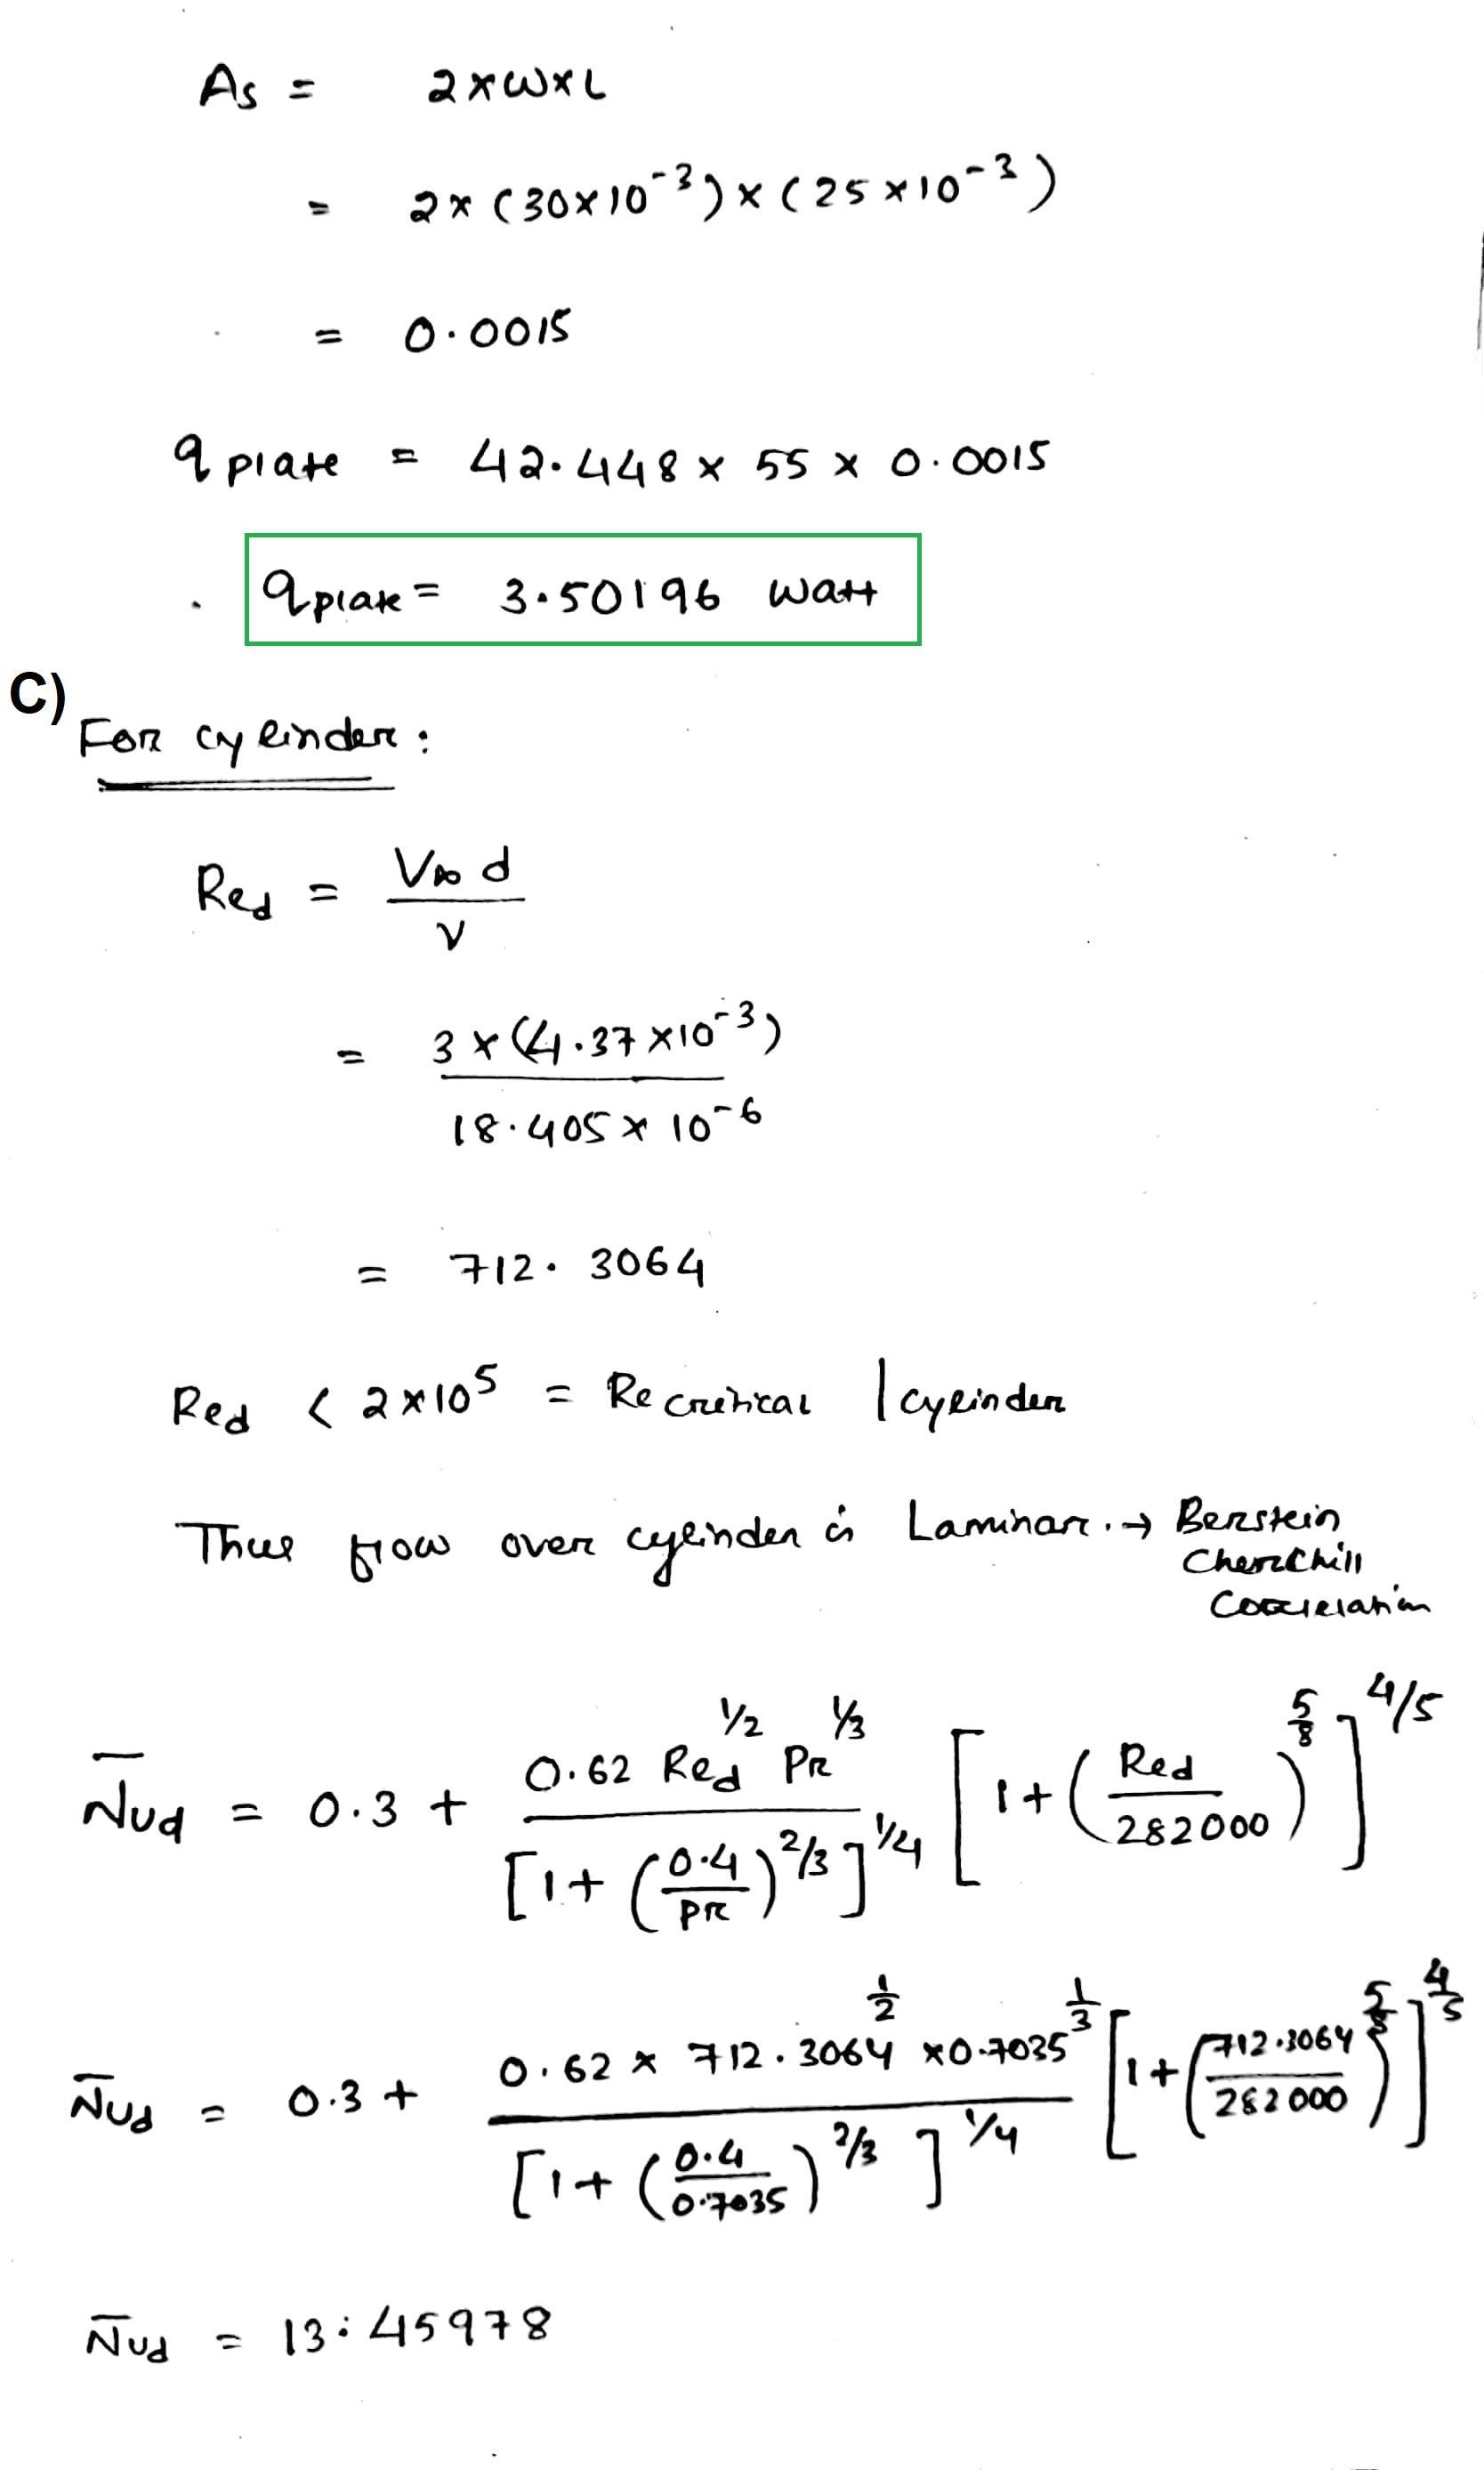 As = 2×W×L
= 2×(30×10⁻³)×(25×10⁻³)
= 0.0015
qplate = 42.448 × 55 × 0.0015
qplate = 3.50196 Watt
C)
For cylinder:
Red = V∞ d / ν
= 3×(4.37×10⁻³) / 18.405×10⁻⁶
= 712.3064
Red < 2×10⁵ = Re critical | cylinder
Thus flow over cylinder is Laminar. → Berstein
Cherchill
Correlation
N̄ud = 0.3 + 0.62 Red^1/2 Pr^1/3 / [1+(0.4/Pr)^2/3]^1/4 [1+(Red/282000)^5/8]^4/5
N̄ud = 0.3 + 0.62 × 712.3064^1/2 × 0.7035^1/3 / [1+(0.4/0.7035)^2/3]^1/4 [1+(712.3064/282000)^5/8]^4/5
N̄ud = 13.45978